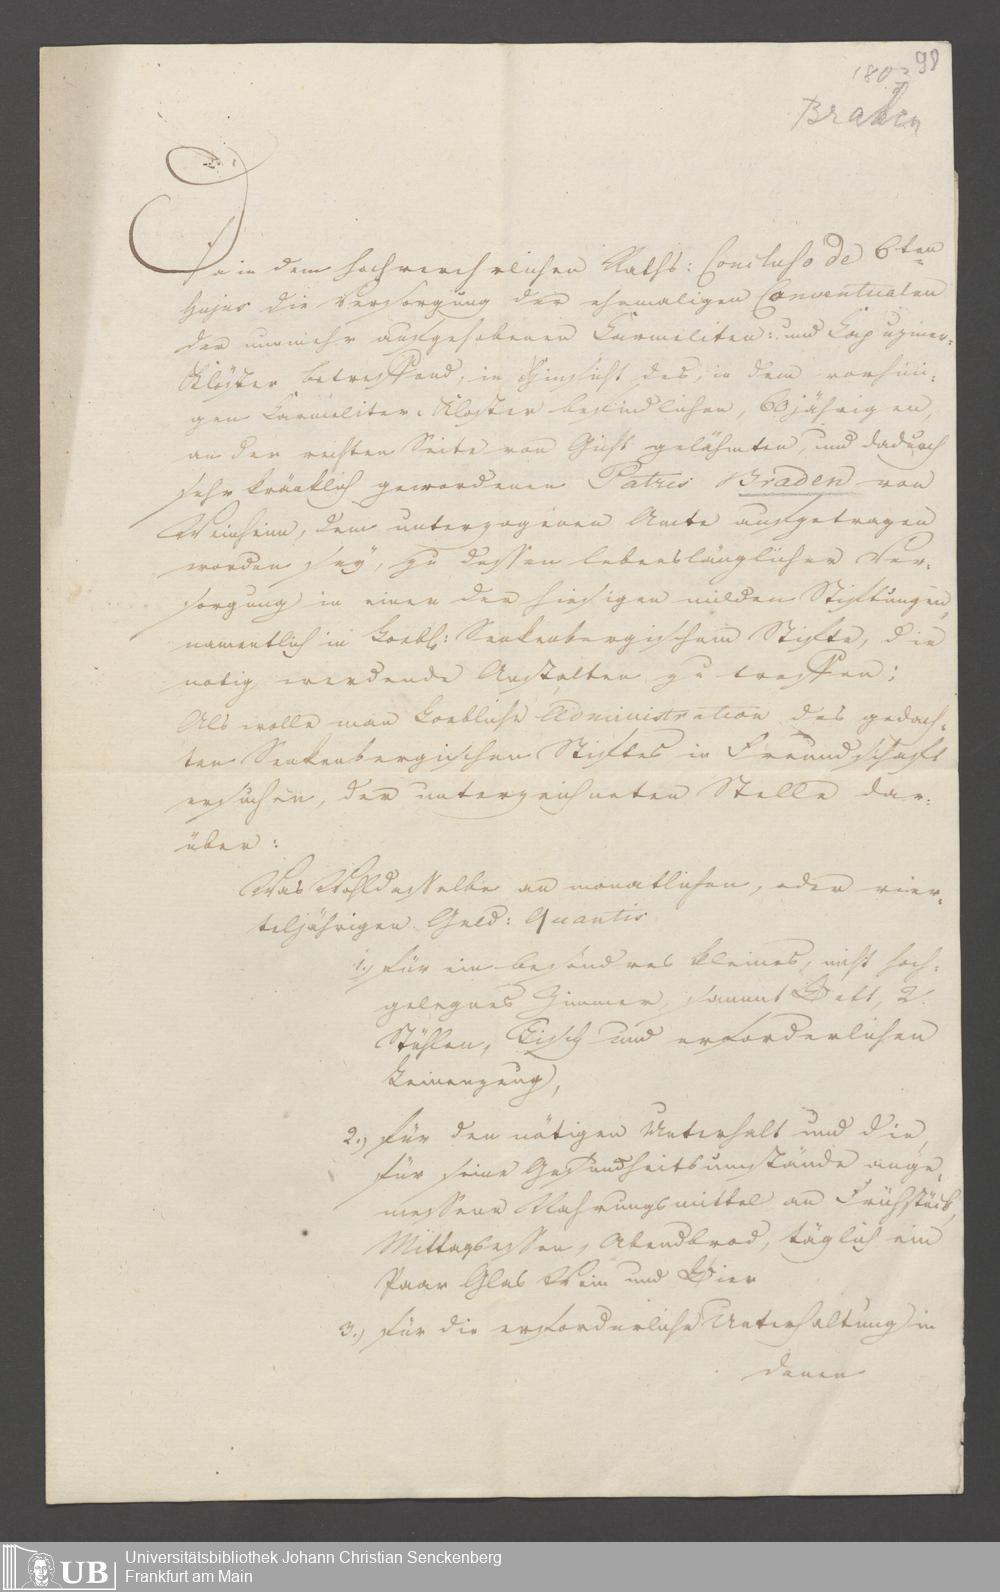 98
1802
Braden
Da in dem hochverehrlichen Raths: Concluso de 6ten
hujus die Versorgung der ehemaligen Conventualen
der nunmehr aufgehobenen Carmeliten: und Capuziner-
Klöster betreffend, in Hinsicht des, in dem vorhini-
gen Carmeliter-Kloster befindlichen, 60jährigen,
an der rechten Seite von Gicht gelähmten, und dadurch
sehr kränklich gewordenen Patris Braden von
Weinheim, dem unterzogenen Amte aufgetragen
worden sey, zu dessen lebenslänglicher Ver-
sorgung in einer der hiesigen milden Stiftungen,
namentlich in Loebl: Senkenbergischem Stifte, die
nötig werdende Anstalten zu treffen;
Als wolle man Loebliche Administration des gedach-
ten Senkenbergischen Stiftes in Freundschaft
ersuchen, der unterzeichneten Stelle dar-
über:
Was Wohldasselbe an monatlichen, oder vier-
teljährigen Geld: Quantis
1.) für ein besondres kleines, nicht hoch-
gelegnes Zimmer, sammt Bett, 2.
Stühlen, Tisch und erforderlichen
Leinenzeug,
2.) für den nötigen Unterhalt und die,
für seine Gesundheitsumstände ange-
messene Nahrungsmittel an Frühstück,
Mittagessen, Abendbrod, täglich ein
Paar Glas Wein und Bier
3.) für die erforderliche Unterhaltung in
denen
UB
Universitätsbibliothek Johann Christian Senckenberg
Frankfurt am Main